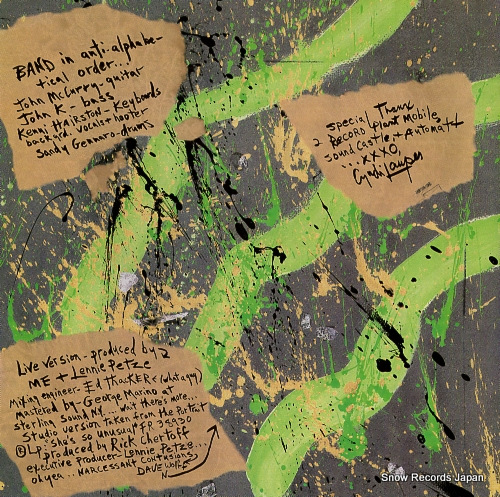 BAND in anti-alphabe-
tical order...
John McCurry-guitar
John K-bass
Kenni HAIRSTON-Keyboards
background vocals + hooter
Sandy Gennaro-drums
special Thanx
2 RECORD plant Mobile,
sound castle, + Automatt
...XXXO,
Cyndi Lauper
Live version-produced by 2
ME + Lennie Petze
Mixing engineer-Ed thacKER < (what a guy)
mastered by-George Marino at
sterling sound NY... wait there's more...
Studio version taken from the Portrait
Lp: She's so unusual FR 38930
produced by Rick Chertoff
executive producer-Lennie Petze...
oh yea... NARCESSANT CONTUSIONS,
DAVE WOLFF
Snow Records Japan